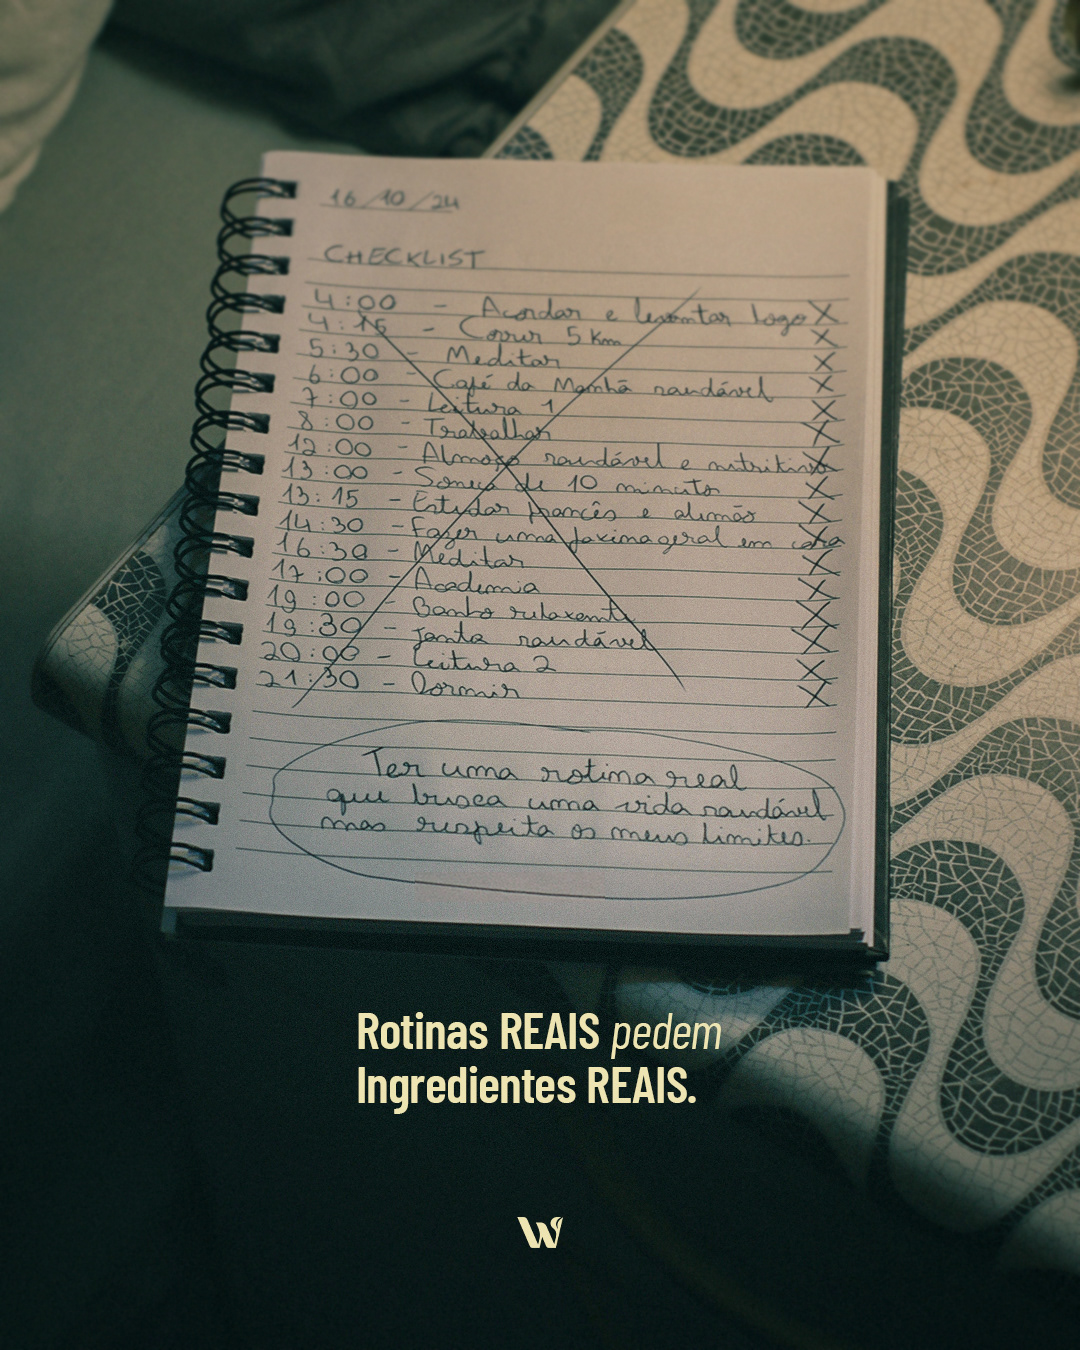 16/10/24
CHECKLIST
4:00 - Acordar e levantar logo X
4:15 - Correr 5 km X
5:30 - Meditar X
6:00 - Café da Manhã saudável X
7:00 - Leitura 1 X
8:00 - Trabalhar X
12:00 - Almoço saudável e nutritivo X
13:00 - Soneca de 10 minuto X
13:15 - Estudar francês e alemão X
14:30 - Fazer uma faxina geral em casa X
16:30 - Meditar X
17:00 - Academia X
19:00 - Banho relaxante X
19:30 - Janta saudável X
20:00 - Leitura 2 X
21:30 - Dormir X
Ter uma rotina real
que busca uma vida saudável
mas respeita os meus limites.
Rotinas REAIS pedem
Ingredientes REAIS.
W